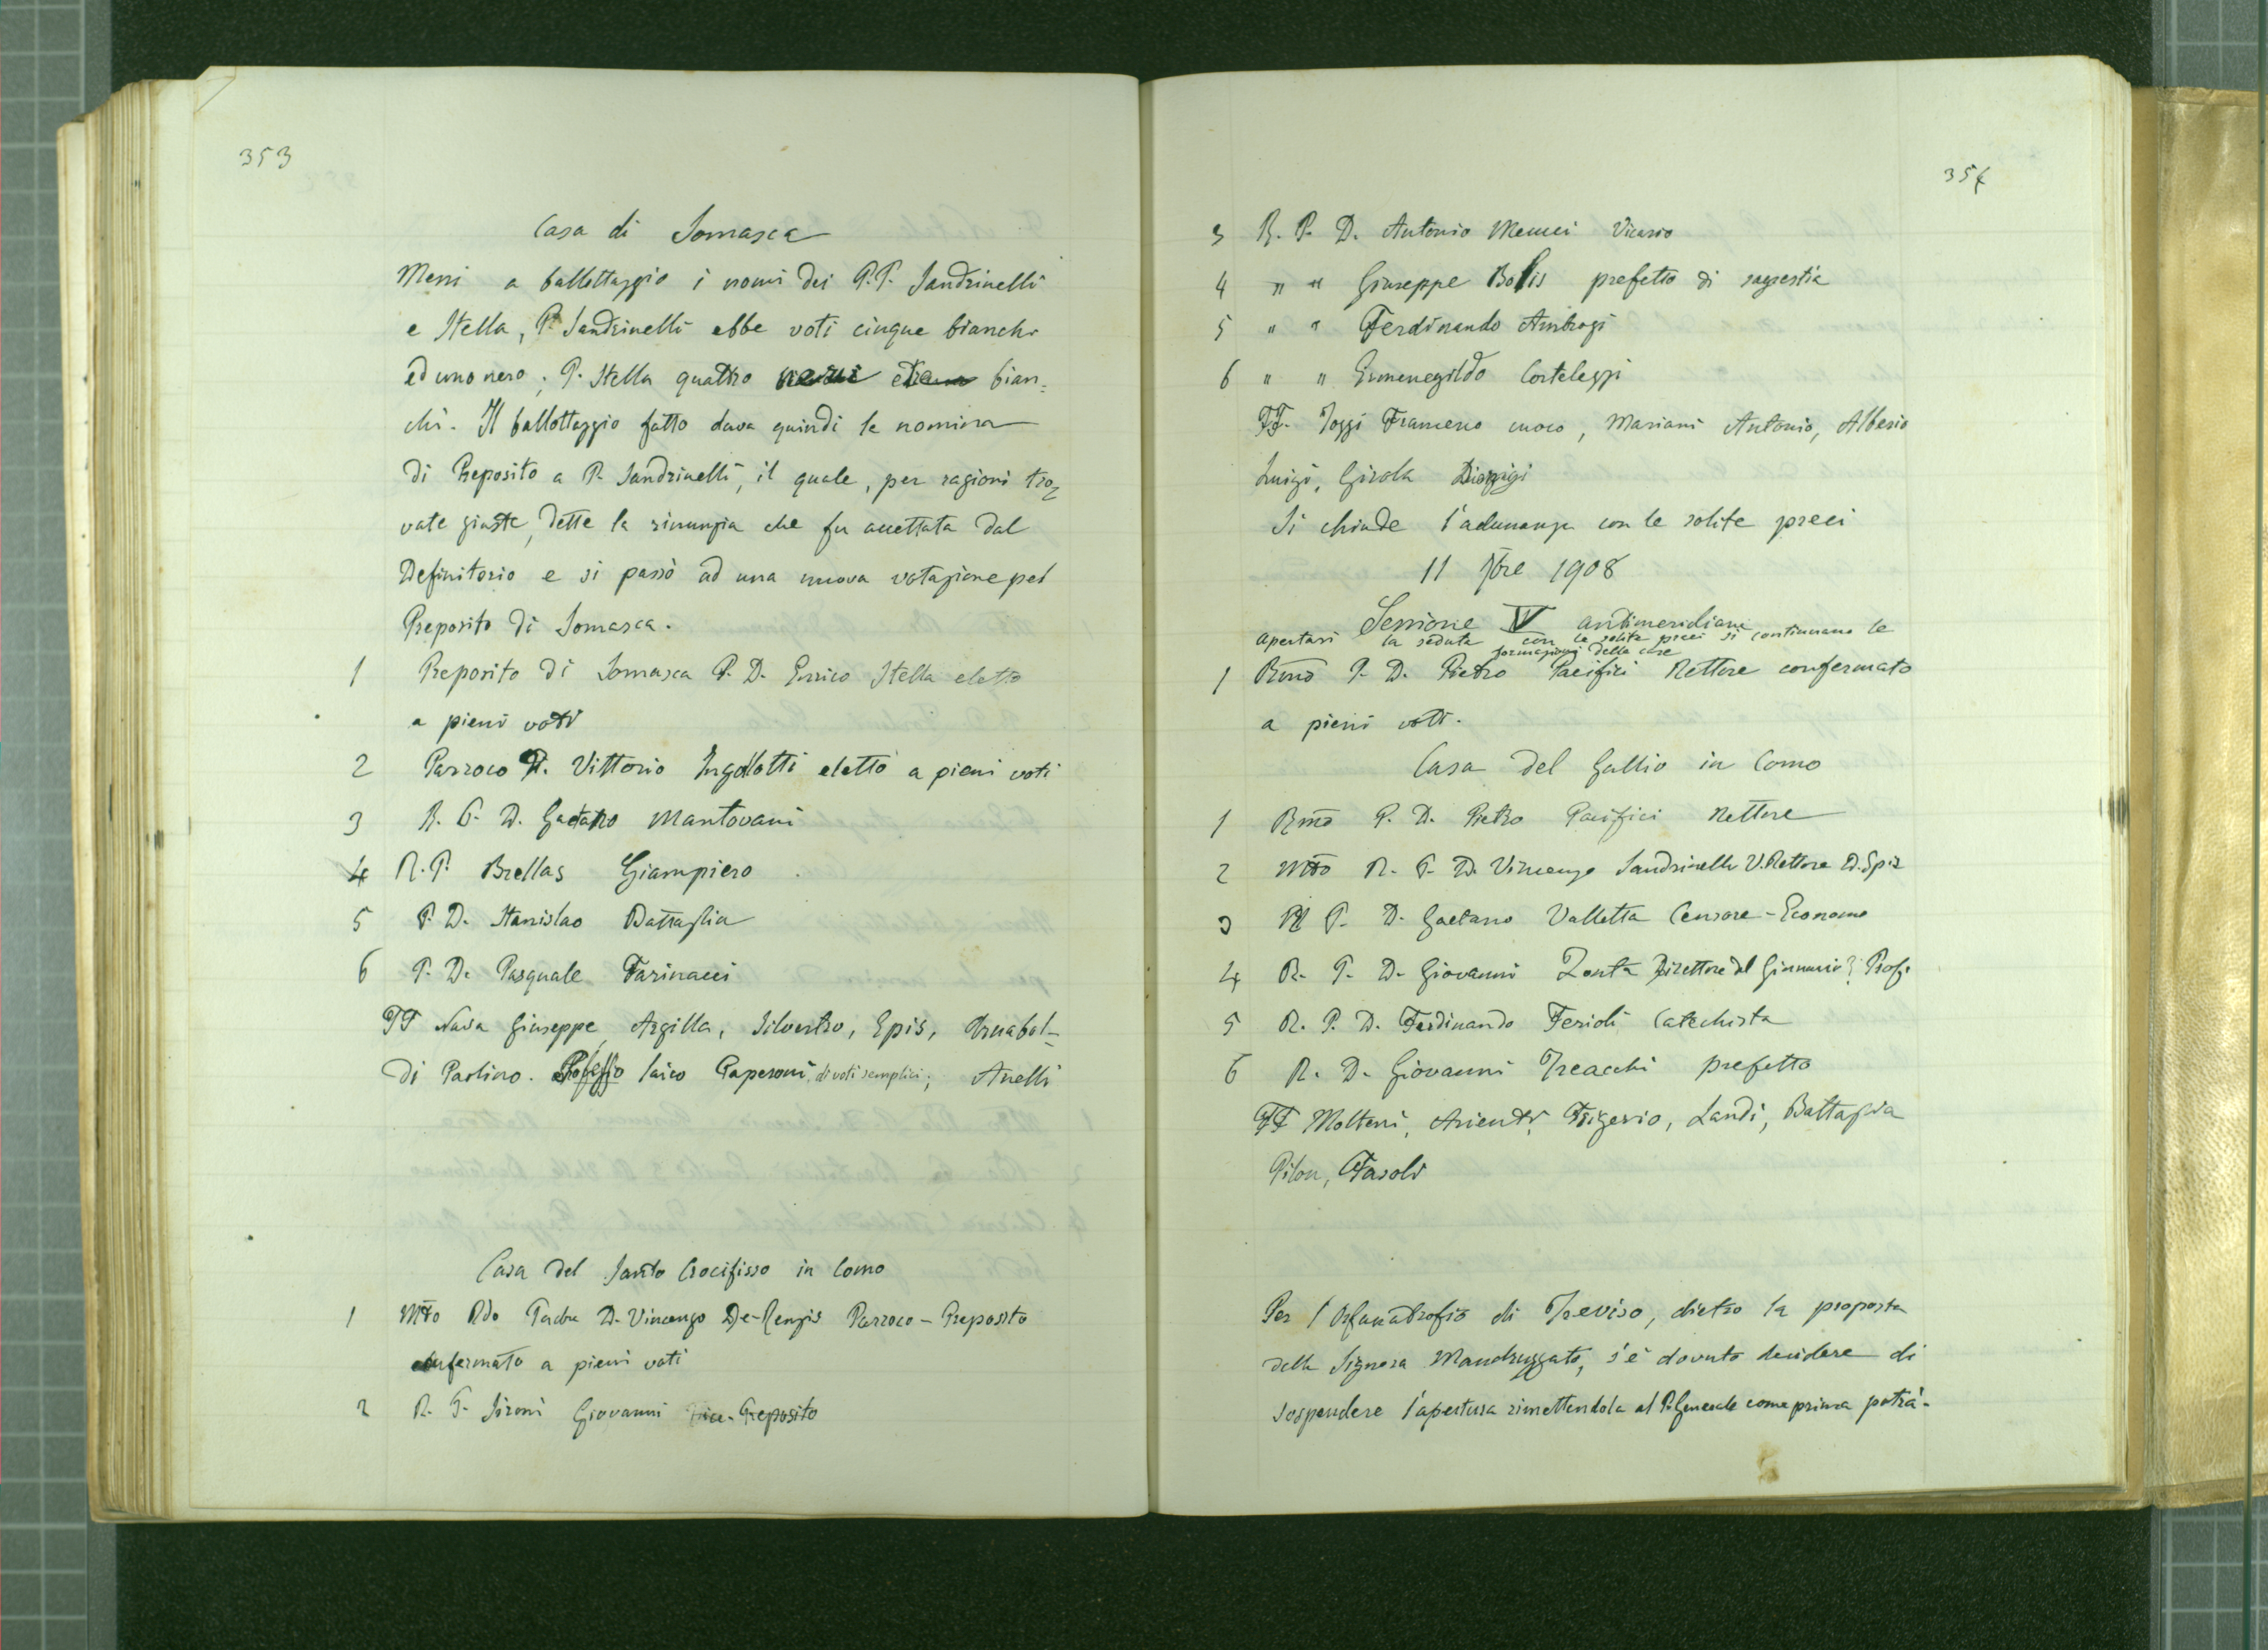 353
Casa di Somasca
Messi a ballottaggio i nomi dei P.P. Sandrinelli
e Stella, P. Sandrinelli ebbe voti cinque bianchi
ed uno nero; P. Stella quattro bian=
chi. Il ballottaggio fatto dava quindi la nomina
di Preposito a P. Sandrinelli, il quale, per ragioni tro=
vate giuste, dette la rinunzia che fu accettata dal
Definitorio e si passò ad una nuova votazione pel
Preposito di Somasca.
1 Preposito di Somasca P. D. Enrico Stella eletto
a pieni voti
2 Parroco P. Vittorio Ingolotti eletto a pieni voti
3 R. P. D. Gaetano Mantovani
4 R. P. Brellas Giampiero
5 P. D. Stanislao Battaglia
6 P. D. Pasquale Farinacci
FF Nava Giuseppe, Argilla, Silvestro, Epis, Brnabol-
di Paolino. Professo laico Paperoni, di voti semplici; Anelli
Casa del Santo Crocifisso in Como
1 Mto Rdo Padre D. Vincenzo De-Renzis Parroco - Preposito
confermato a pieni voti
2 R. P. Sironi Giovanni Vice-Preposito
354
3 R. P. D. Antonio Menuei Vicario
4 " " Giuseppe Bolis prefetto di sagrestia
5 " " Ferdinando Ambrogi
6 " " Ermenegildo Cortelezzi
FF. Poggi Francesco cuoco, Mariani Antonio, Alberio
Luigi, Girola Luigi
Si chiude l'adunanza con le solite preci
11 7bre 1908
Sessione IV antimeridiana
Apertasi la seduta con le solite preci si continuano le
formazioni delle case
1 Rmo P. D. Pietro Pacifici Rettore confermato
a pieni voti.
Casa del Gallio in Como
1 Rmo P. D. Pietro Pacifici Rettore
2 Mto R. P. D. Vincenzo Sandrinelli V. Rettore D. Spir
3 R P. D. Gaetano Valletta Censore - Economo
4 R. P. D. Giovanni Zonta Direttore del Ginnasio e Prof.
5 R. P. D. Ferdinando Ferioli Catechista
6 R. D. Giovanni Treacchi prefetto
FF Molteni, Arienti, Frigerio, Landi, Battaglia
Pilon, Fasoli
Per l'Orfanatrofio di Treviso, dietro la proposta
della Signora Mandruzzato, s'è dovuto decidere di
sospendere l'apertura rimettendola al P. Generale come prima potrà.